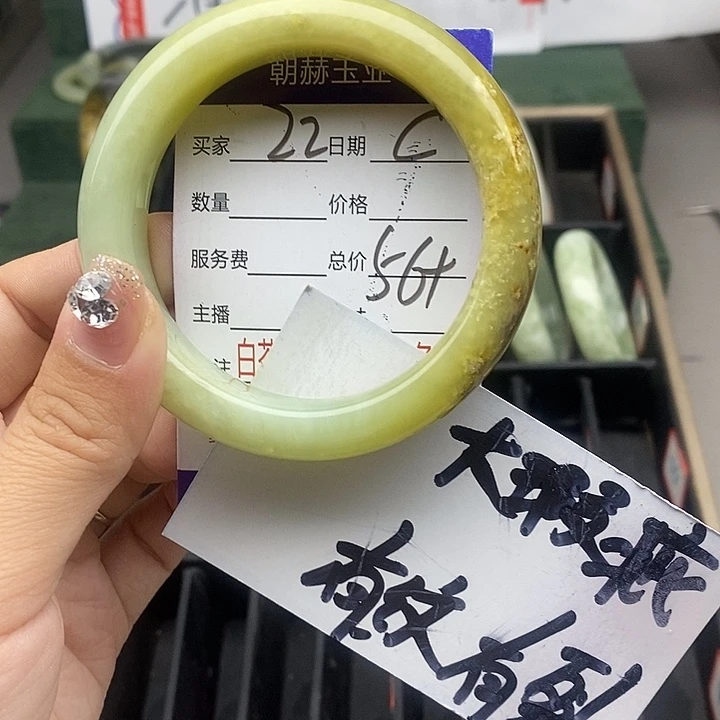 朝赫玉业
买家 22 日期 C
数量 价格
服务费 总价 56+
主播
注 白
大瑕疵
有纹有列